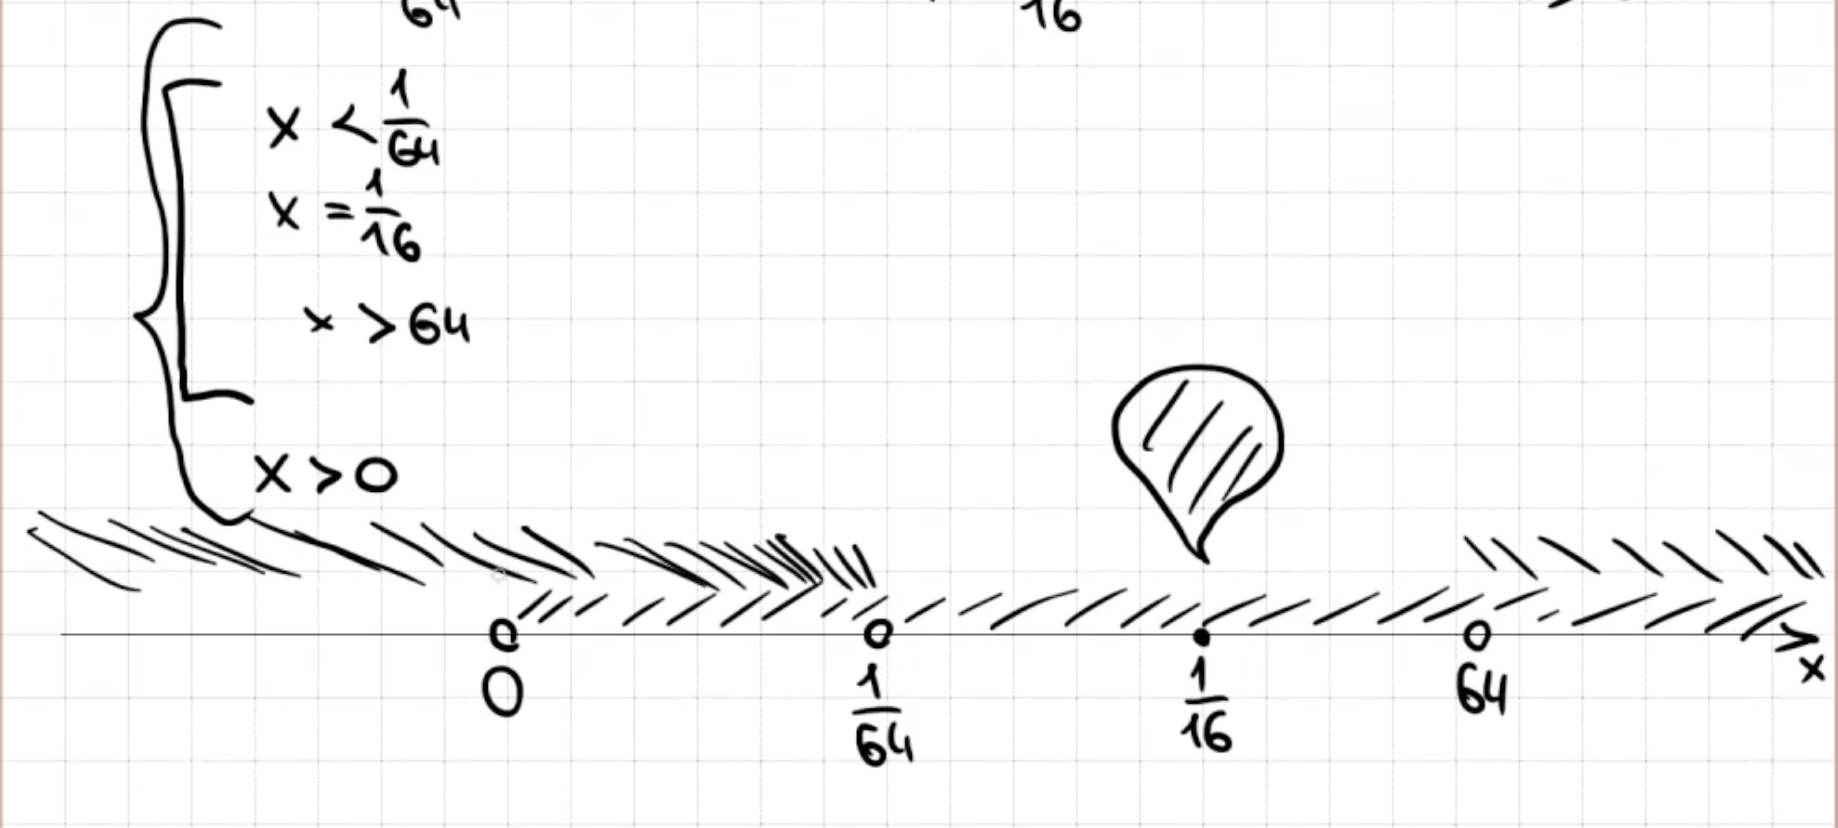 64 16
x < 1/64
x = 1/16
x > 64
x > 0
0 1/64 1/16 64 x